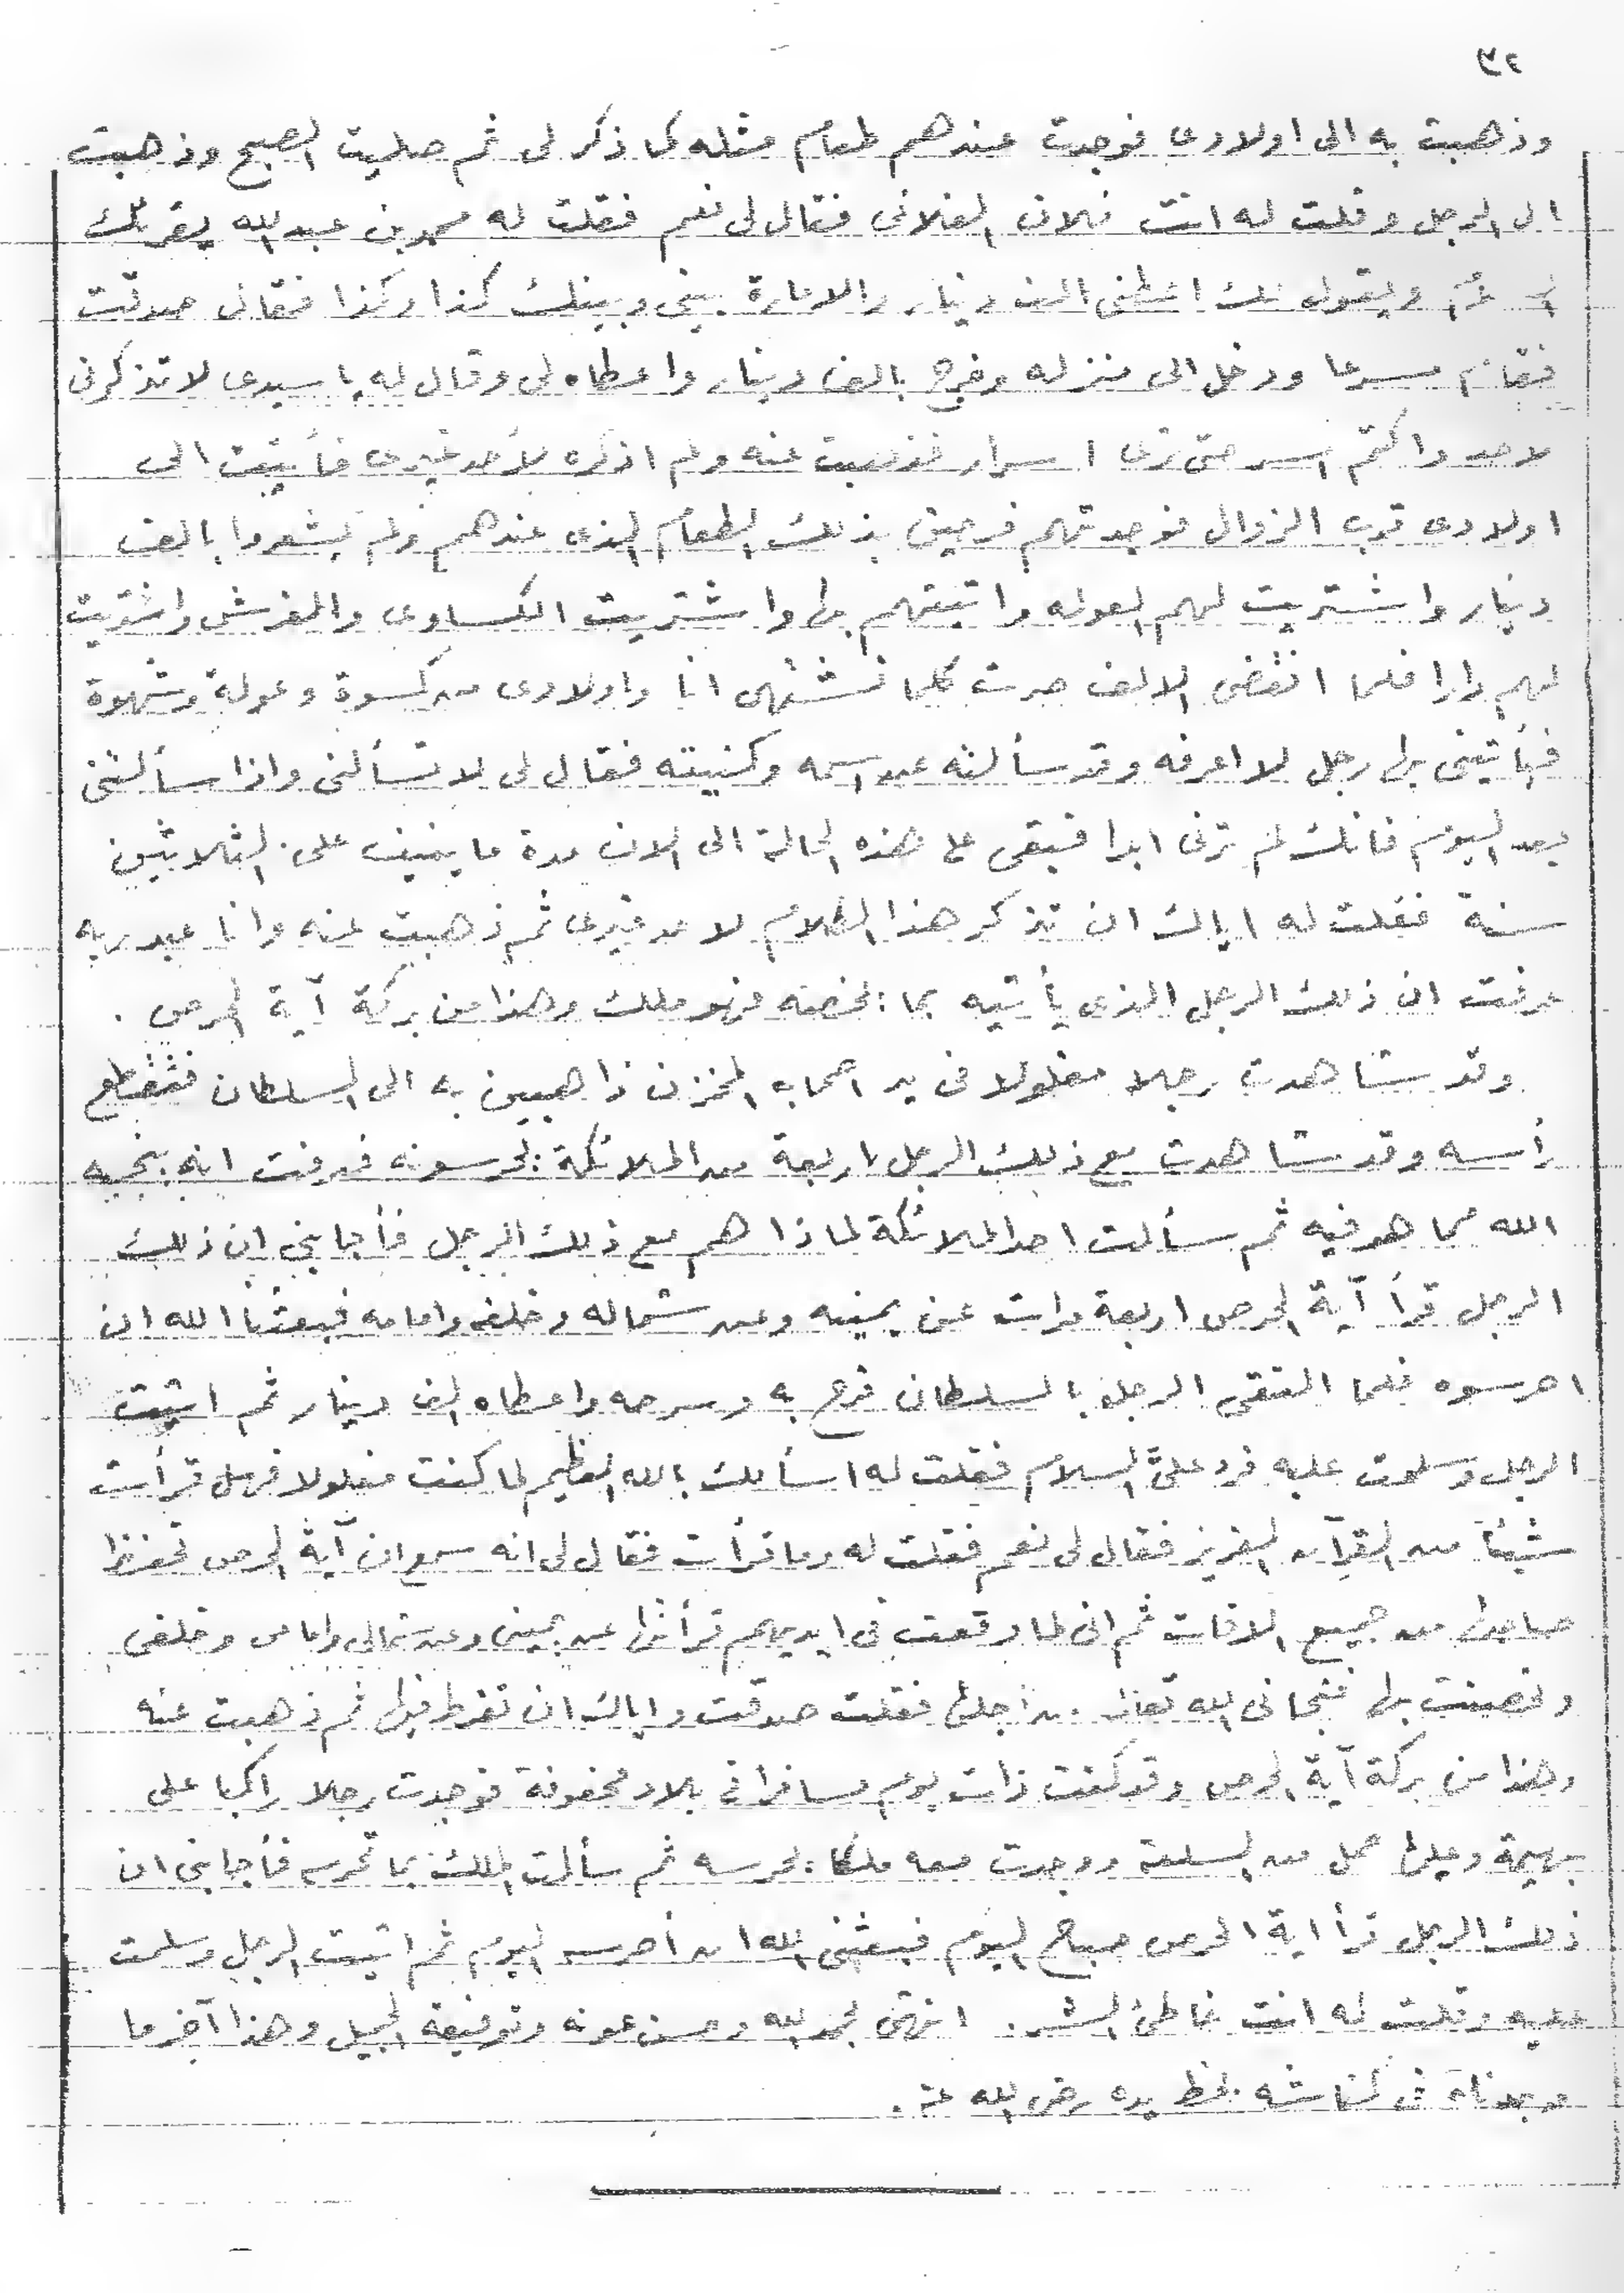 ٣٢
وذهبت به الى اولادى فوجدت عندهم طعام مثله كما ذكر لى ثم صليت الصبح وذهبت
الى الرجل وقلت له انت فلان الفلانى فقال لى نعم فقلت له محمد بن عبد الله يقرئك
ويقول لك اعطنى الف دينار والامارة بينى وبينك كذا وكذا فقال صدقت
فقام مسرعا ودخل الى منزله وخرج بالف دينار واعطاه لى وقال له يا سيدى لا تذكرنى
لاحد واكتم السر حتى ترى اسرار فذهبت عنه ولم اذكره لأحد غيرى فأتيت الى
اولادى قرب الزوال فوجدتهم فرحين بذلك الطعام الذى عندهم ولم يشعروا بالف
دينار واشتريت لهم العوله واتيتهم بها واشتريت الكساوى والمفرش واشتريت
لهم دارا فلما انقضى الالف صرت كلما نشتهى انا واولادى من كسوة وعولة وشهوة
فيأتينى بها رجل لا اعرفه وقد سألته عن اسمه وكنيته فقال لى لا تسألنى واذا سألتنى
بعد اليوم فانك لم ترنى ابدا فبقى على هذه الحالة الى الان مدة ما ينيف على الثلاثين
سنة فقلت له اياك ان تذكر هذا الكلام لاحد غيرى ثم ذهبت عنه وانا عبد ربه
عرفت ان ذلك الرجل الذى يأتيه بما يخصه فهو ملك وهذا من بركة آية الحرص .
وقد شاهدت رجلا مغلولا فى يد اصحاب المخزن ذاهبين به الى السلطان فتقطع
رأسه وقد شاهدت مع ذلك الرجل اربعة من الملائكة يحرسونه فعرفت انه ينجيه
الله مما هو فيه ثم سألت احد الملائكة لماذا هم مع ذلك الرجل فأجابنى ان ذلك
الرجل قرأ آية الحرص اربعة مرات عن يمينه وعن شماله وخلفه وامامه فبعثنا الله ان
احرسوه فلما التقى الرجل بالسلطان فرح به وسرحه واعطاه الف دينار ثم اتيت
الرجل وسلمت عليه فرد علىّ السلام فقلت له اسألك بالله العظيم لما كنت مغلولا فهل قرأت
شيئاً من القرآن العزيز فقال لى نعم فقلت له وما قرأت فقال لى انه سمع ان آية الحرص تحفظ
صاحبها من جميع الافات ثم انى لما وقعت فى ايديهم قرأتها عن يمينى وعن شمالى وامامى وخلفى
وتحصنت بها فنجانى الله تعالى من اجلها فقلت صدقت واياك ان تفرط فيها ثم ذهبت عنه
وهذا من بركة آية الحرص وقد كنت ذات يوم مسافرا فى بلاد مخوفة فوجدت رجلا راكبا على
بهيمة وعليها حمل من السلعة ووجدت معه ملكا يحرسه ثم سألت الملك بما تحرسه فأجابنى ان
ذلك الرجل قرأ اية الحرص صباح اليوم فبعثنى الله ان أحرسه اليوم ثم اتيت الرجل وسلمت
عليه وقلت له انت خاطئ السر . انتهى بحمد الله وحسن عونه وتوفيقه الجميل وهذا آخر ما
وجدناه فى كناشه بخط يده رضى الله عنه .